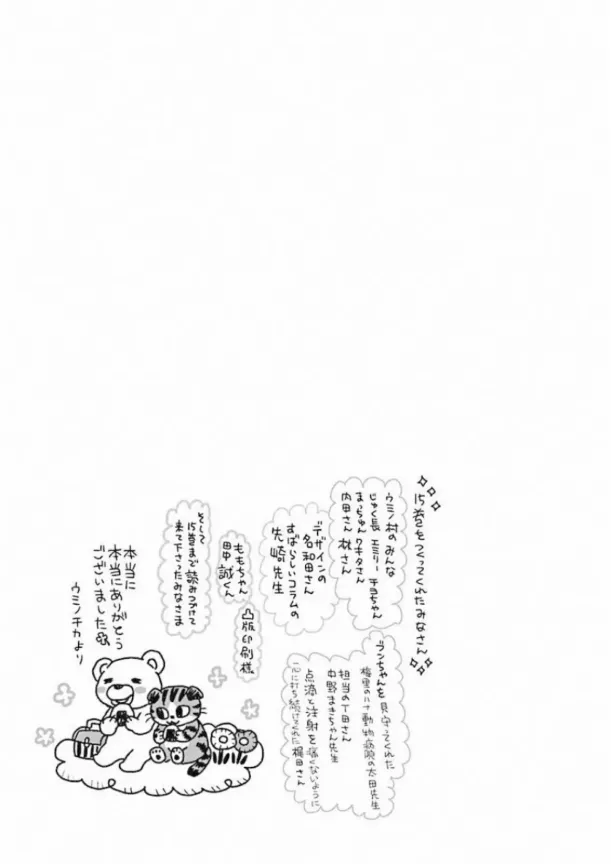 15巻をつくってくれたみなさん
ウミノ村のみんな
じゅく長 エミリー チヨちゃん
まっちゅん ワキタさん
内田さん 林さん
デザインの
名和田さん
すばらしいコラムの
先崎先生
ももちゃん
田中 誠くん
凸版印刷様
ブンちゃんを見守ってくれた
梅里のハナ動物病院の太田先生
担当の丁田さん
中野まきちゃん先生
点滴と注射を痛くないように
心に打ち続けてくれた 梶田さん
そして
15巻まで読みつづけて
来て下さったみなさま
本当に
本当にありがとう
ございました
ウミノチカより